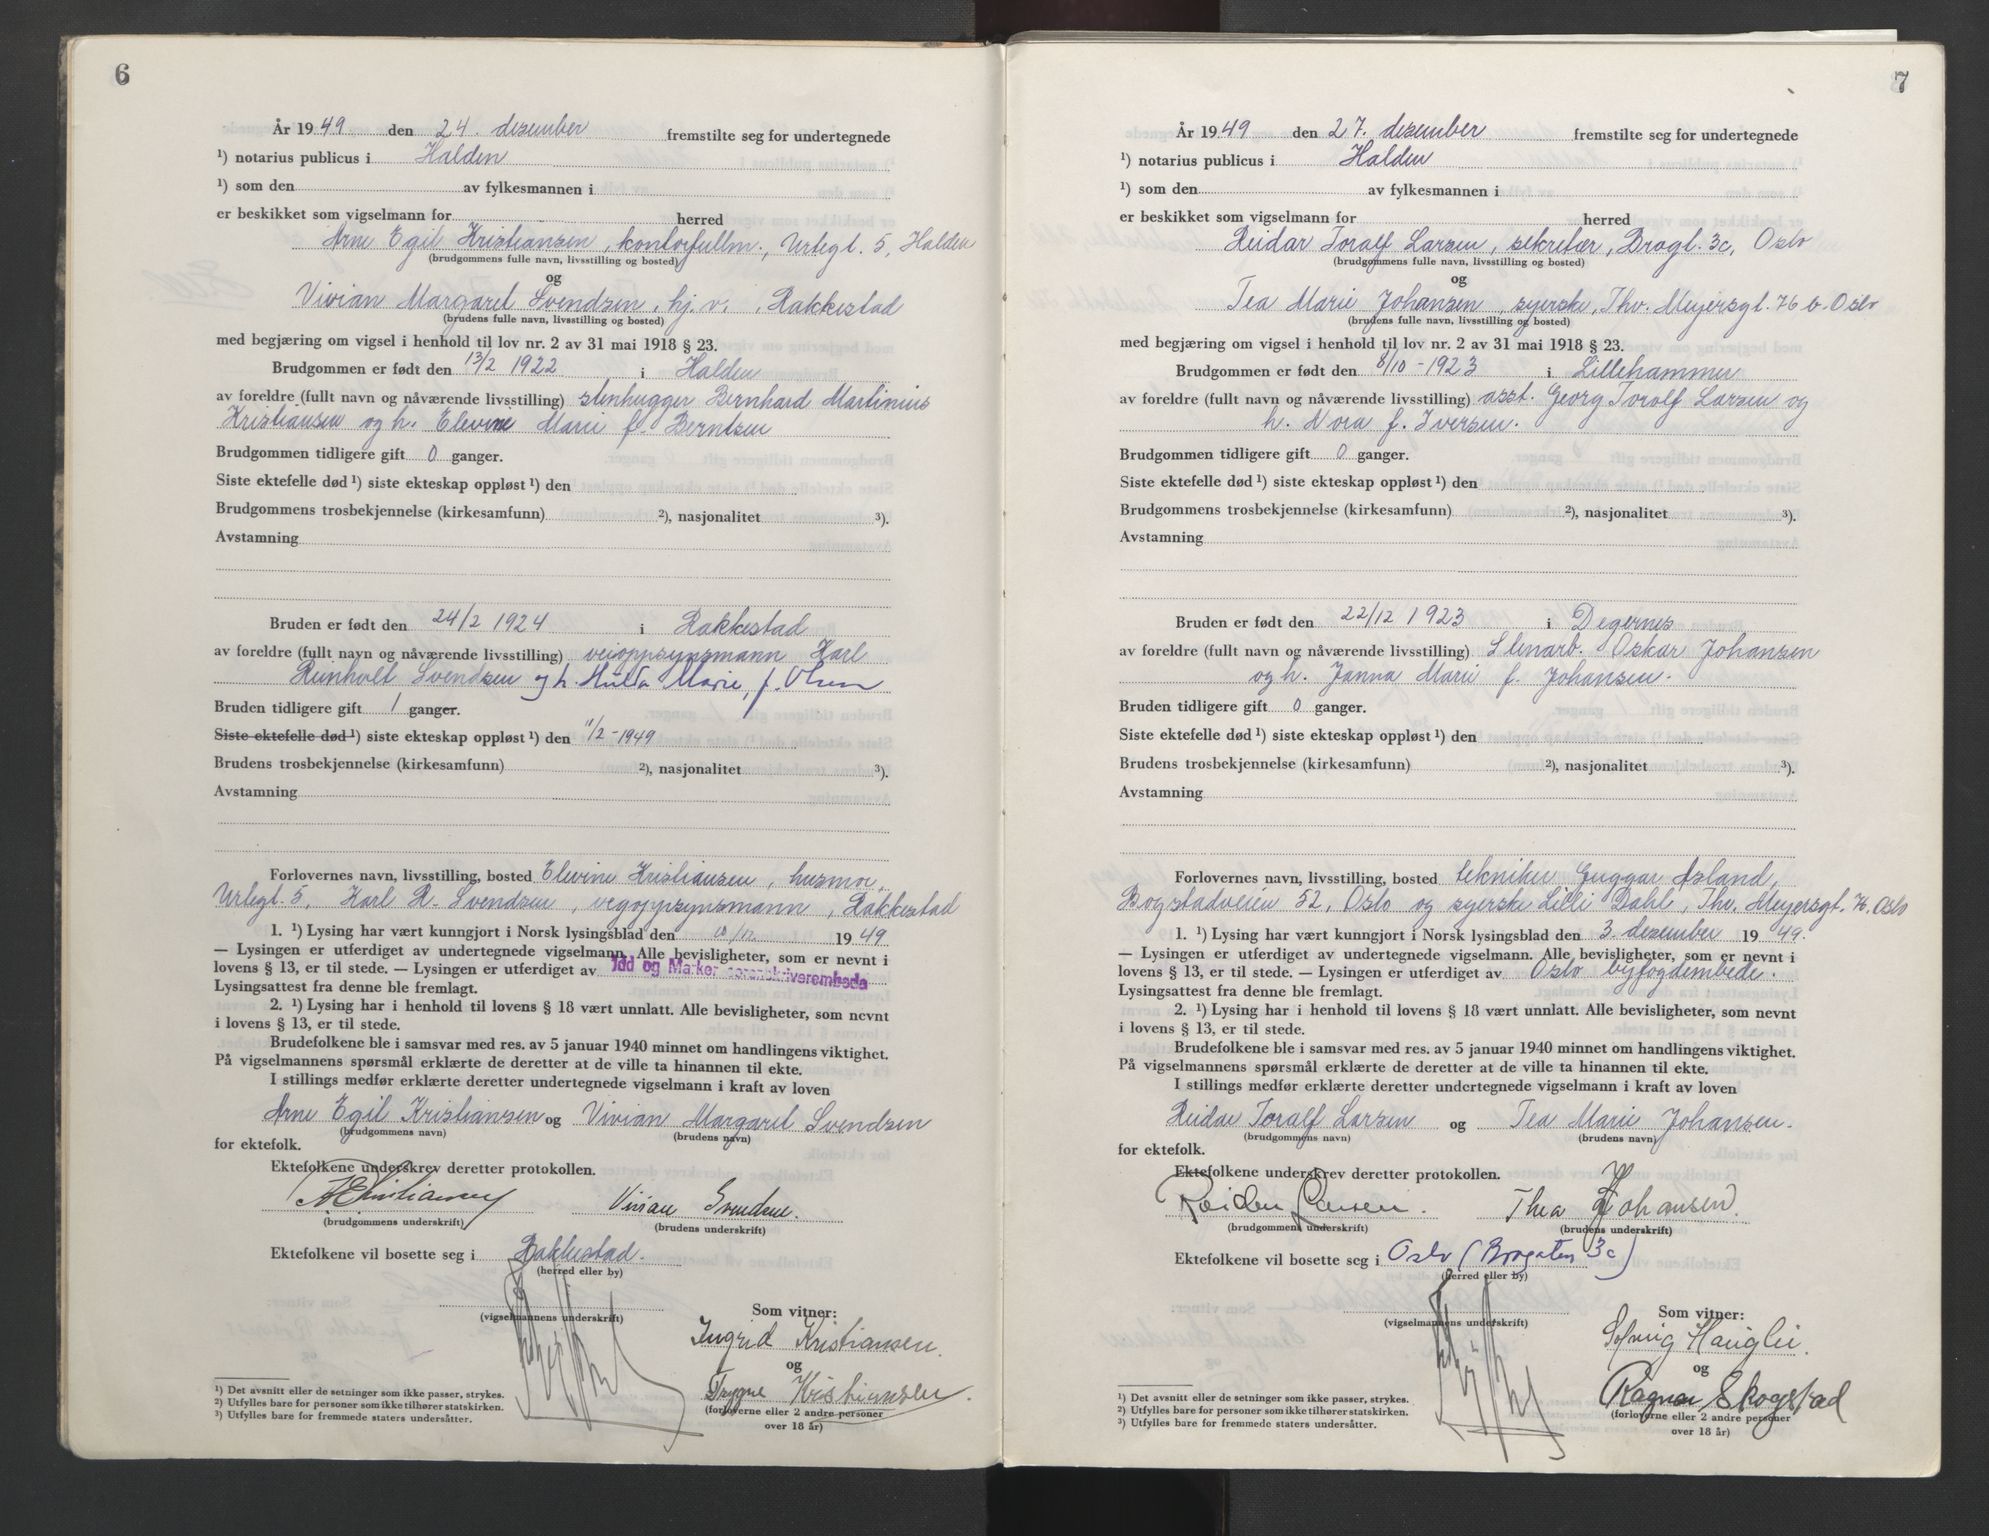 6
År 1949 den 24. desember fremstilte seg for undertegnede
¹) notarius publicus i Halden
¹) som den av fylkesmannen i
er beskikket som vigselmann for herred
Arne Egil Kristiansen, kontorfullm., Urtegt. 5, Halden
(brudgommens fulle navn, livsstilling og bosted)
og
Vivian Margaret Svendsen, hj.v., Rakkestad
(brudens fulle navn, livsstilling og bosted)
med begjæring om vigsel i henhold til lov nr. 2 av 31 mai 1918 § 23.
Brudgommen er født den 13/2 1922 i Halden
av foreldre (fullt navn og nåværende livsstilling) stenhugger Bernhard Martinius
Kristiansen og h. Elevine Marie f. Berntsen
Brudgommen tidligere gift 0 ganger.
Siste ektefelle død ¹) siste ekteskap oppløst ¹) den
Brudgommens trosbekjennelse (kirkesamfunn) ²), nasjonalitet ³).
Avstamning
Bruden er født den 24/2 1924 i Rakkestad
av foreldre (fullt navn og nåværende livsstilling) veioppsynsmann Karl
Reinholt Svendsen og h. Hulda Marie, f. Olsen
Bruden tidligere gift 1 ganger.
Siste ektefelle død ¹) siste ekteskap oppløst ¹) den 11/2-1949
Brudens trosbekjennelse (kirkesamfunn) ²), nasjonalitet ³).
Avstamning
Forlovernes navn, livsstilling, bosted Elevine Kristiansen, husmor,
Urtegt. 5, Karl R. Svendsen, vegoppsynsmann, Rakkestad
1. ¹) Lysing har vært kunngjort i Norsk lysingsblad den 10/12 1949
— Lysingen er utferdiget av undertegnede vigselmann. Alle bevisligheter, som er nevnt i
lovens § 13, er til stede. — Lysingen er utferdiget av Idd og Marker sorenskriverembede
Lysingsattest fra denne ble fremlagt.
2. ¹) Lysing har i henhold til lovens § 18 vært unnlatt. Alle bevisligheter, som nevnt
i lovens § 13, er til stede.
Brudefolkene ble i samsvar med res. av 5 januar 1940 minnet om handlingens viktighet.
På vigselmannens spørsmål erklærte de deretter at de ville ta hinannen til ekte.
I stillings medfør erklærte deretter undertegnede vigselmann i kraft av loven
Arne Egil Kristiansen og Vivian Margaret Svendsen
(brudgommens navn) (brudens navn)
for ektefolk.
Ektefolkene underskrev deretter protokollen.
A E Kristiansen Vivian Svendsen.
(brudgommens underskrift) (brudens underskrift)
Ektefolkene vil bosette seg i Rakkestad.
(herred eller by)
(vigselmannens underskrift)
Som vitner:
Ingrid Kristiansen.
og
Trygve Kristiansen.
(forloverne eller 2 andre personer
over 18 år)
¹) Det avsnitt eller de setninger som ikke passer, strykes.
²) Utfylles bare for personer som ikke tilhører statskirken.
³) Utfylles bare for fremmede staters undersåtter.
7
År 1949 den 27. desember fremstilte seg for undertegnede
¹) notarius publicus i Halden
¹) som den av fylkesmannen i
er beskikket som vigselmann for herred
Reidar Toralf Larsen, sekretær, Brogt. 3c, Oslo
(brudgommens fulle navn, livsstilling og bosted)
og
Tea Marie Johansen, syerske, Thv. Meyersgt. 76 b. Oslo
(brudens fulle navn, livsstilling og bosted)
med begjæring om vigsel i henhold til lov nr. 2 av 31 mai 1918 § 23.
Brudgommen er født den 8/10-1923 i Lillehammer
av foreldre (fullt navn og nåværende livsstilling) asst. Georg Toralf Larsen og
h. Nora f. Iversen.
Brudgommen tidligere gift 0 ganger.
Siste ektefelle død ¹) siste ekteskap oppløst ¹) den
Brudgommens trosbekjennelse (kirkesamfunn) ²), nasjonalitet ³).
Avstamning
Bruden er født den 22/12 1923 i Degernes
av foreldre (fullt navn og nåværende livsstilling) Stenarb. Oskar Johansen
og h. Janna Marie f. Johansen.
Bruden tidligere gift 0 ganger.
Siste ektefelle død ¹) siste ekteskap oppløst ¹) den
Brudens trosbekjennelse (kirkesamfunn) ²), nasjonalitet ³).
Avstamning
Forlovernes navn, livsstilling, bosted tekniker Asland,
Bogstadveien 52, Oslo og syerske Lilli Dahl, Thv. Meyersgt. Oslo
1. ¹) Lysing har vært kunngjort i Norsk lysingsblad den 3. desember 1949.
— Lysingen er utferdiget av undertegnede vigselmann. Alle bevisligheter, som er nevnt i
lovens § 13, er til stede. — Lysingen er utferdiget av Oslo byfogdembede.
Lysingsattest fra denne ble fremlagt.
2. ¹) Lysing har i henhold til lovens § 18 vært unnlatt. Alle bevisligheter, som nevnt
i lovens § 13, er til stede.
Brudefolkene ble i samsvar med res. av 5 januar 1940 minnet om handlingens viktighet.
På vigselmannens spørsmål erklærte de deretter at de ville ta hinannen til ekte.
I stillings medfør erklærte deretter undertegnede vigselmann i kraft av loven
Reidar Toralf Larsen og Tea Marie Johansen.
(brudgommens navn) (brudens navn)
for ektefolk.
Ektefolkene underskrev deretter protokollen.
Reidar Larsen. Thea Johansen.
(brudgommens underskrift) (brudens underskrift)
Ektefolkene vil bosette seg i Oslo (Brogaten 3c)
(herred eller by)
(vigselmannens underskrift)
Som vitner:
Solveig Hauglie.
og
Ragnar Skogstad
(forloverne eller 2 andre personer
over 18 år)
¹) Det avsnitt eller de setninger som ikke passer, strykes.
²) Utfylles bare for personer som ikke tilhører statskirken.
³) Utfylles bare for fremmede staters undersåtter.